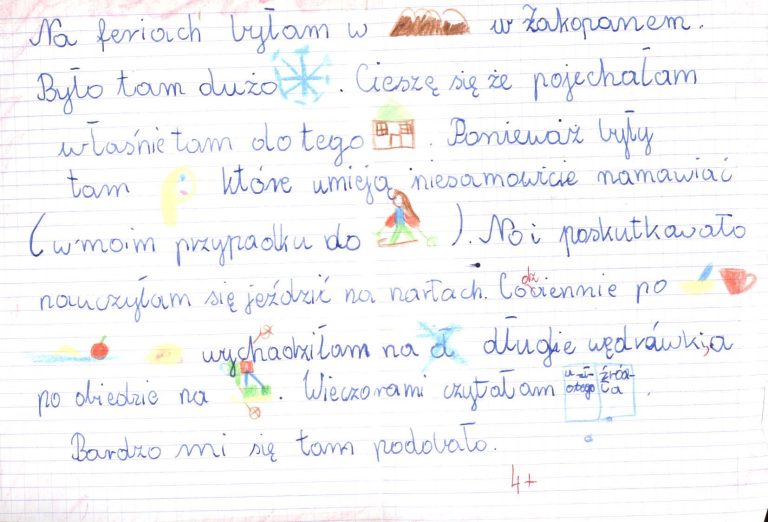 Na feriach byłam w w Zakopanem.
Było tam dużo . Cieszę się że pojechałam
właśnie tam do tego . Ponieważ były
tam które umieją niesamowicie namawiać
(w moim przypadku do ). No i poskutkowało
nauczyłam się jeździć na nartach. Codziennie po
wychodziłam na długie wędrówki, a
po obiedzie na . Wieczorami czytałam u zł- otego źród- ła .
Bardzo mi się tam podobało.
4+